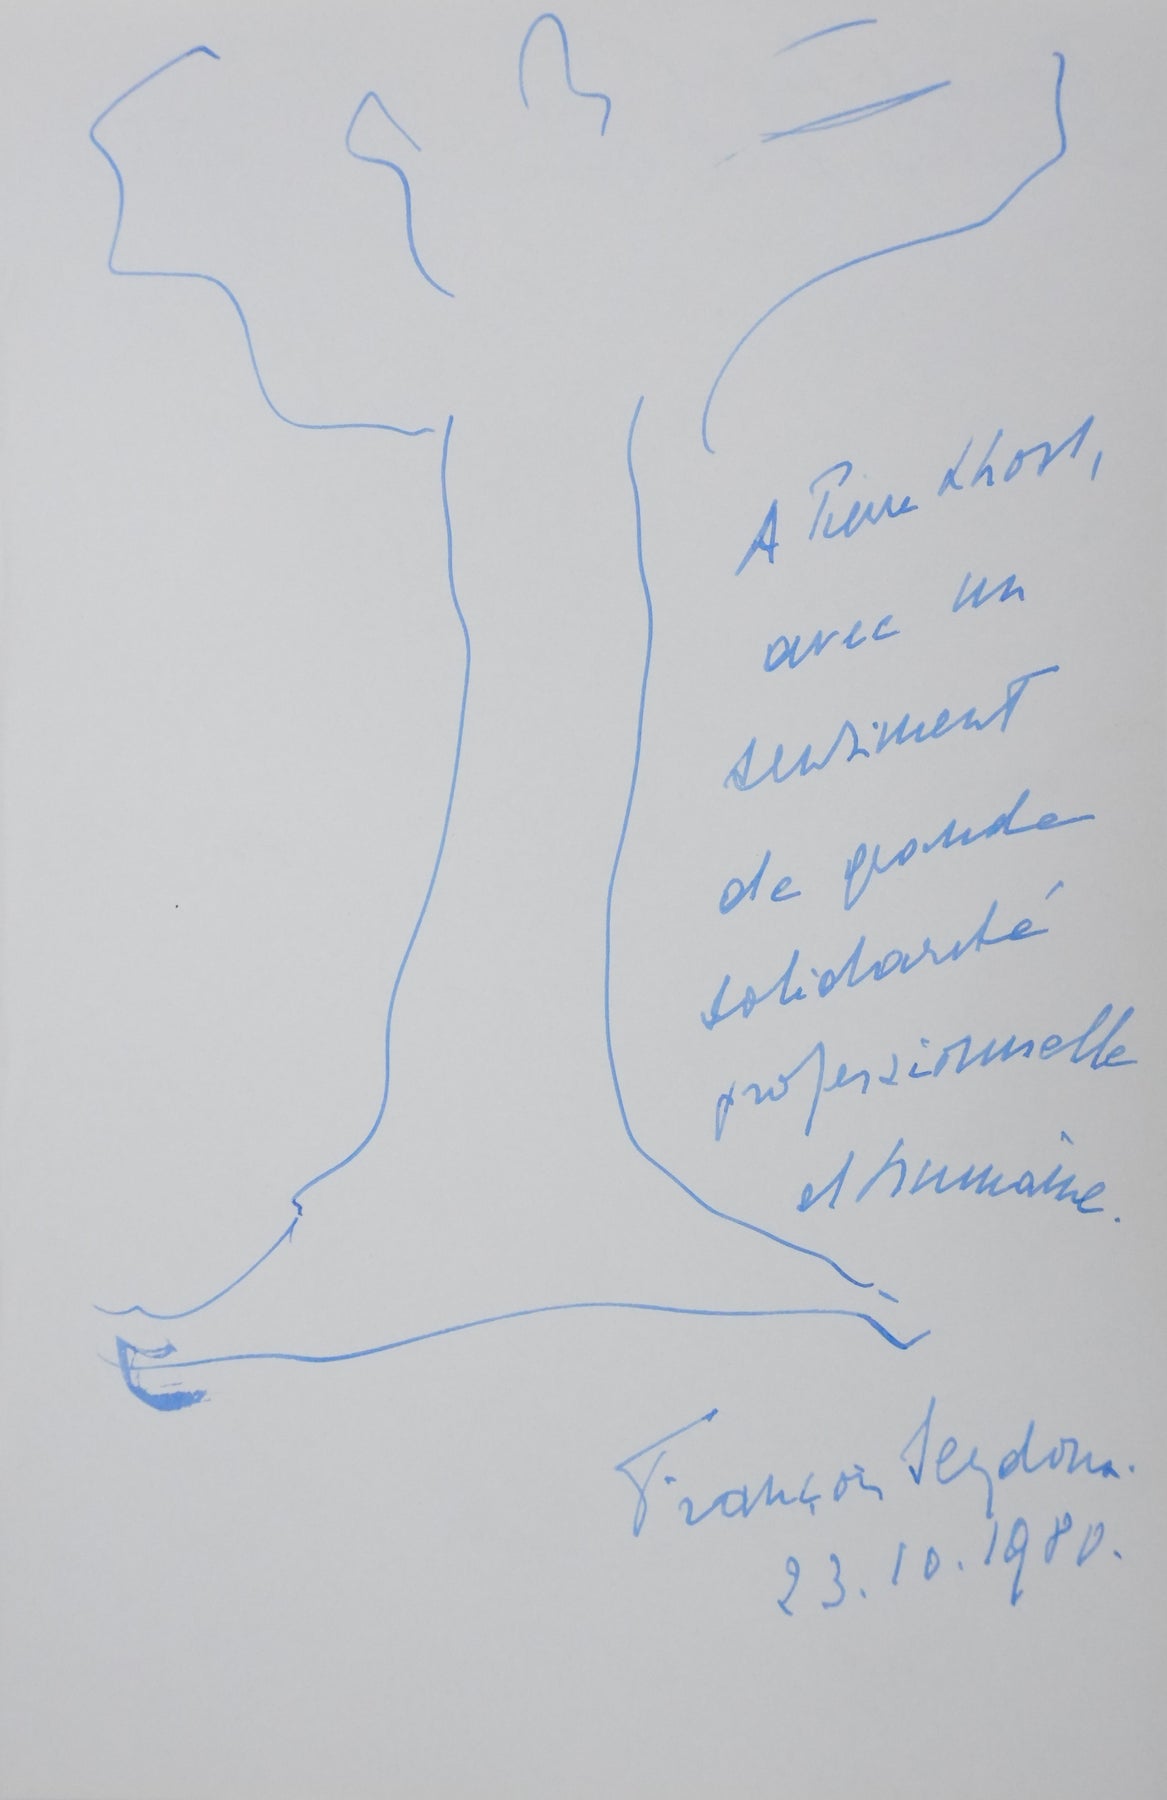 A Pierre Khost,
avec un
sentiment
de grande
solidarité
professionnelle
et humaine.
François Seydoux.
23.10.1980.